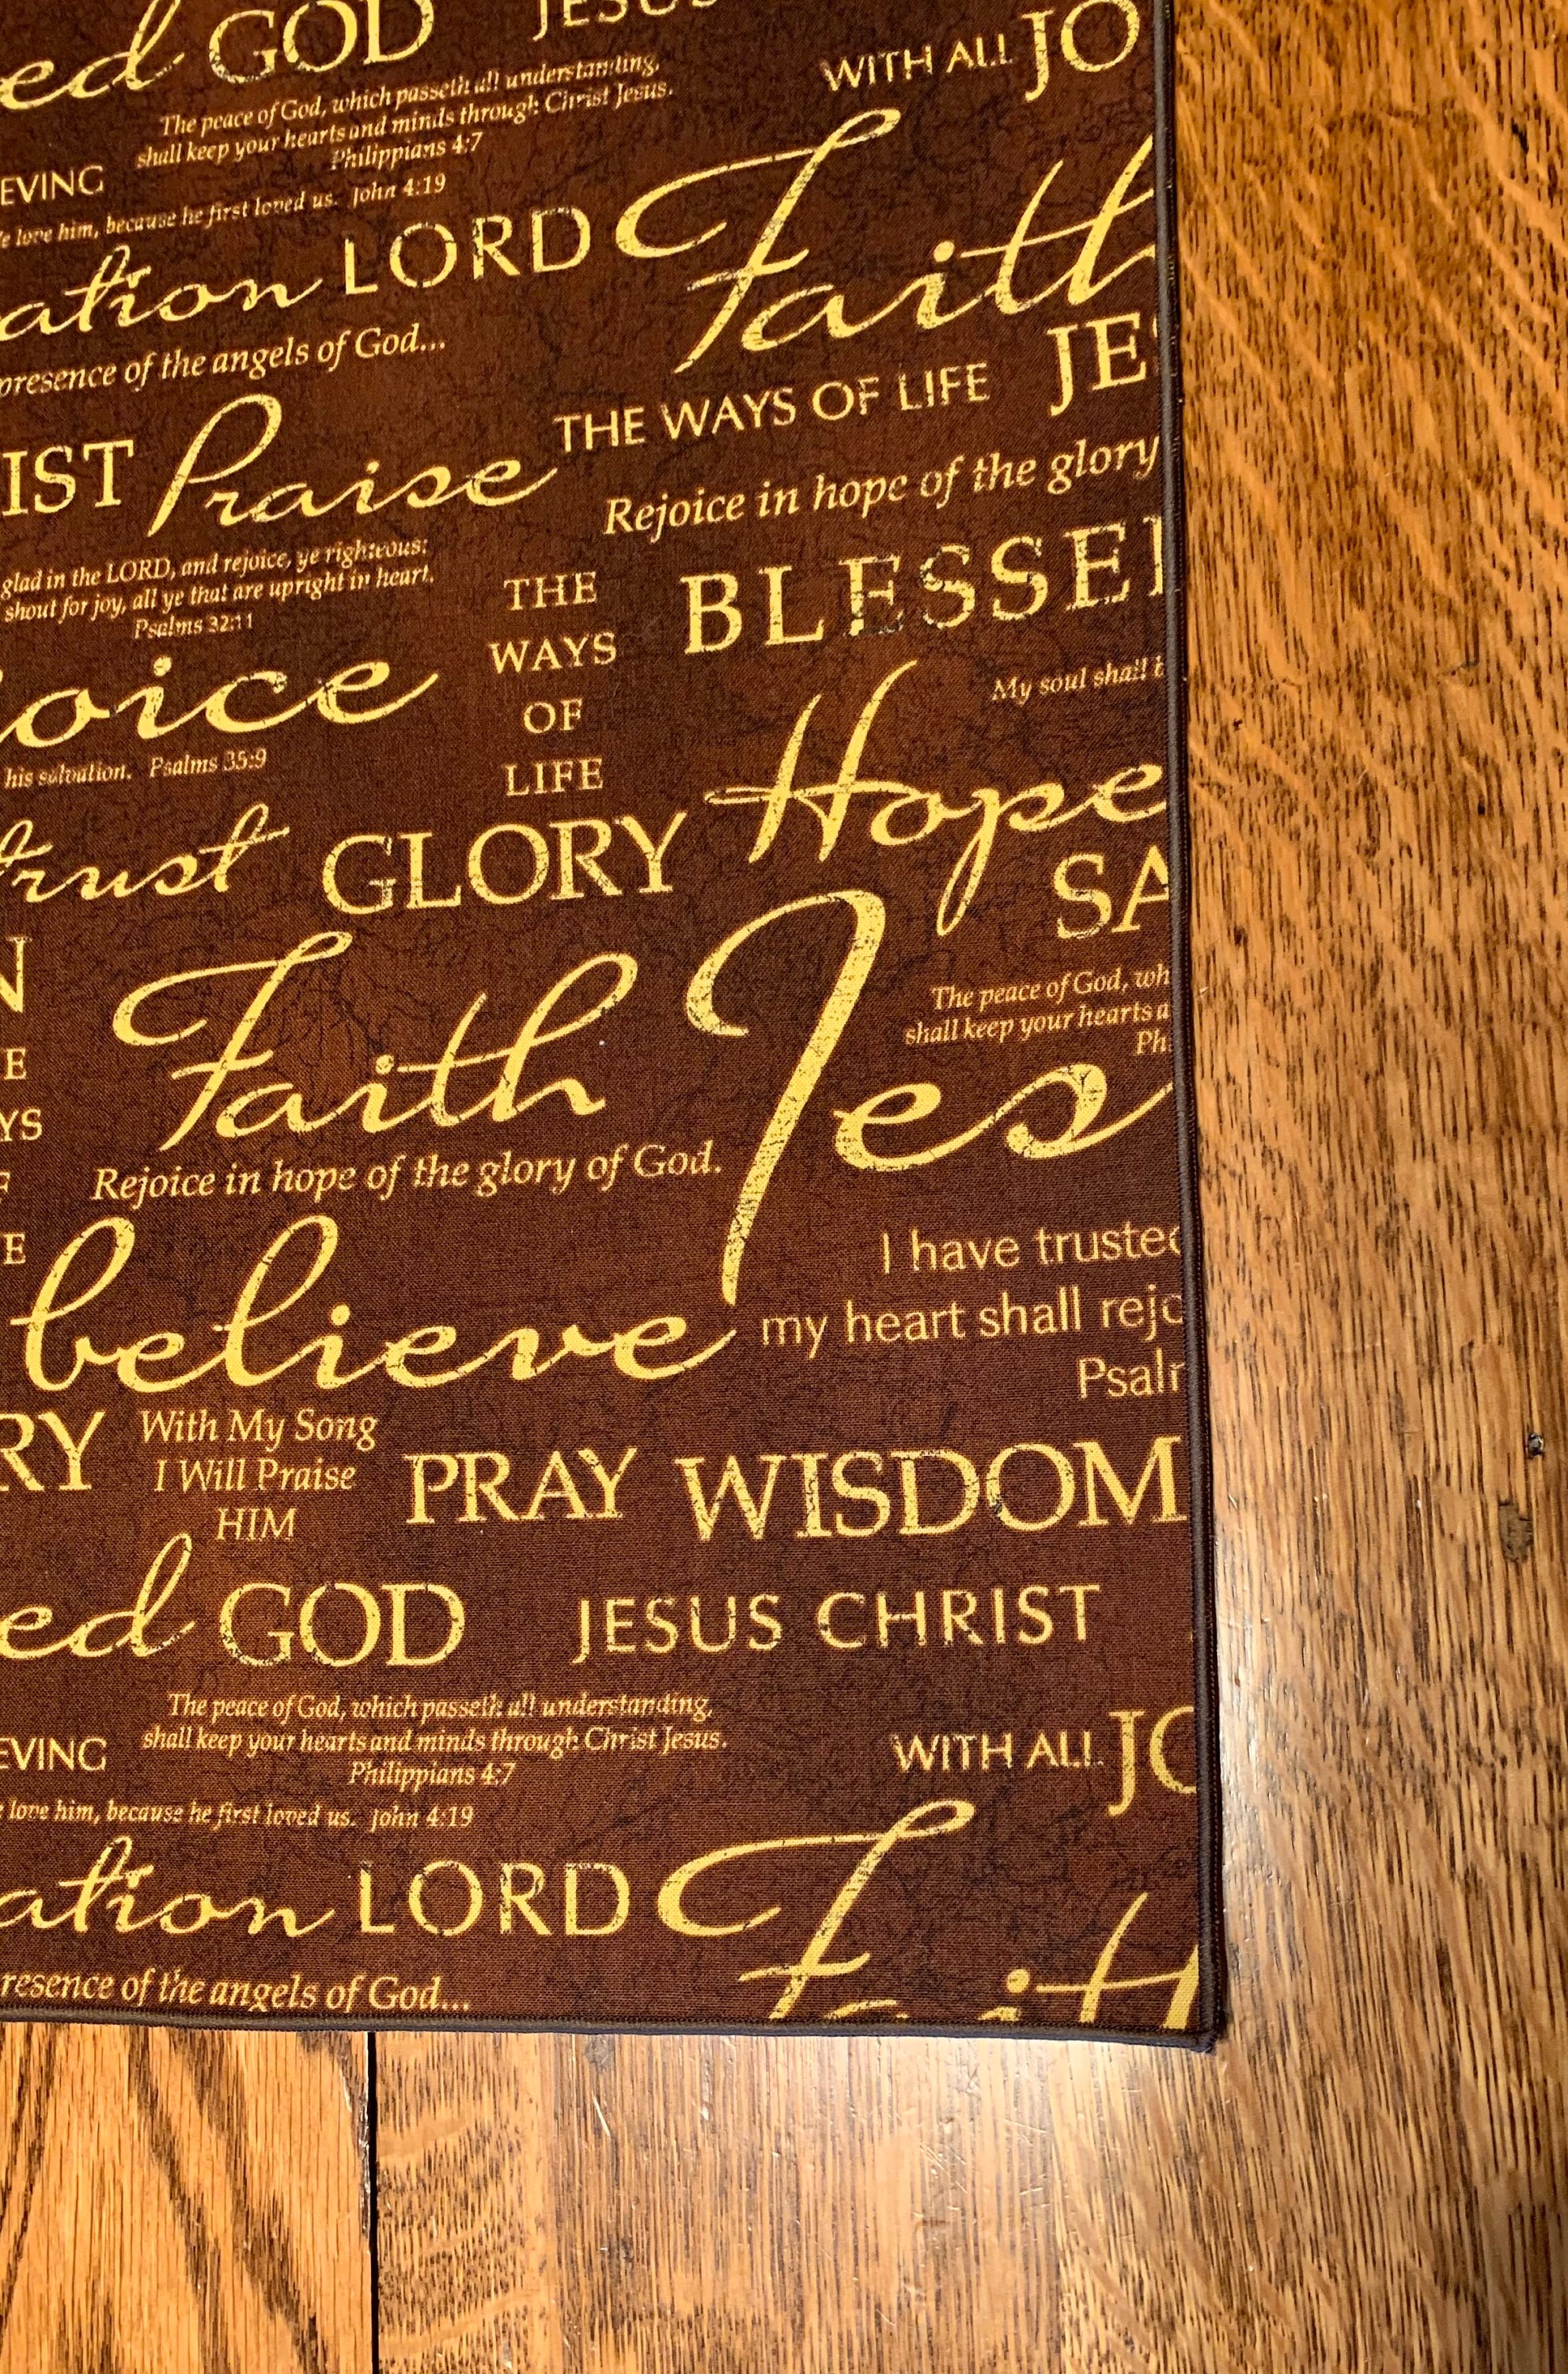 ed GOD JESUS
The peace of God, which passeth all understanding,
shall keep your hearts and minds through Christ Jesus.
Philippians 4:7
WITH ALL JO
EVING
e love him, because he first loved us. John 4:19
ation LORD Faith
presence of the angels of God...
IST Praise THE WAYS OF LIFE JES
Rejoice in hope of the glory
glad in the LORD, and rejoice, ye righteous:
shout for joy, all ye that are upright in heart.
Psalms 32:11
THE
WAYS
OF
LIFE
BLESSE
My soul shall b
oice
his salvation. Psalms 35:9
trust GLORY Hope
SA
N
E
YS
F
E
Faith Jes
The peace of God, wh
shall keep your hearts a
Ph
Rejoice in hope of the glory of God.
believe
I have trusted
my heart shall rejo
Psalm
RY
With My Song
I Will Praise
HIM
PRAY WISDOM
ed GOD JESUS CHRIST
The peace of God, which passeth all understanding,
shall keep your hearts and minds through Christ Jesus.
Philippians 4:7
EVING
WITH ALL JO
love him, because he first loved us. John 4:19
ation LORD Faith
resence of the angels of God...